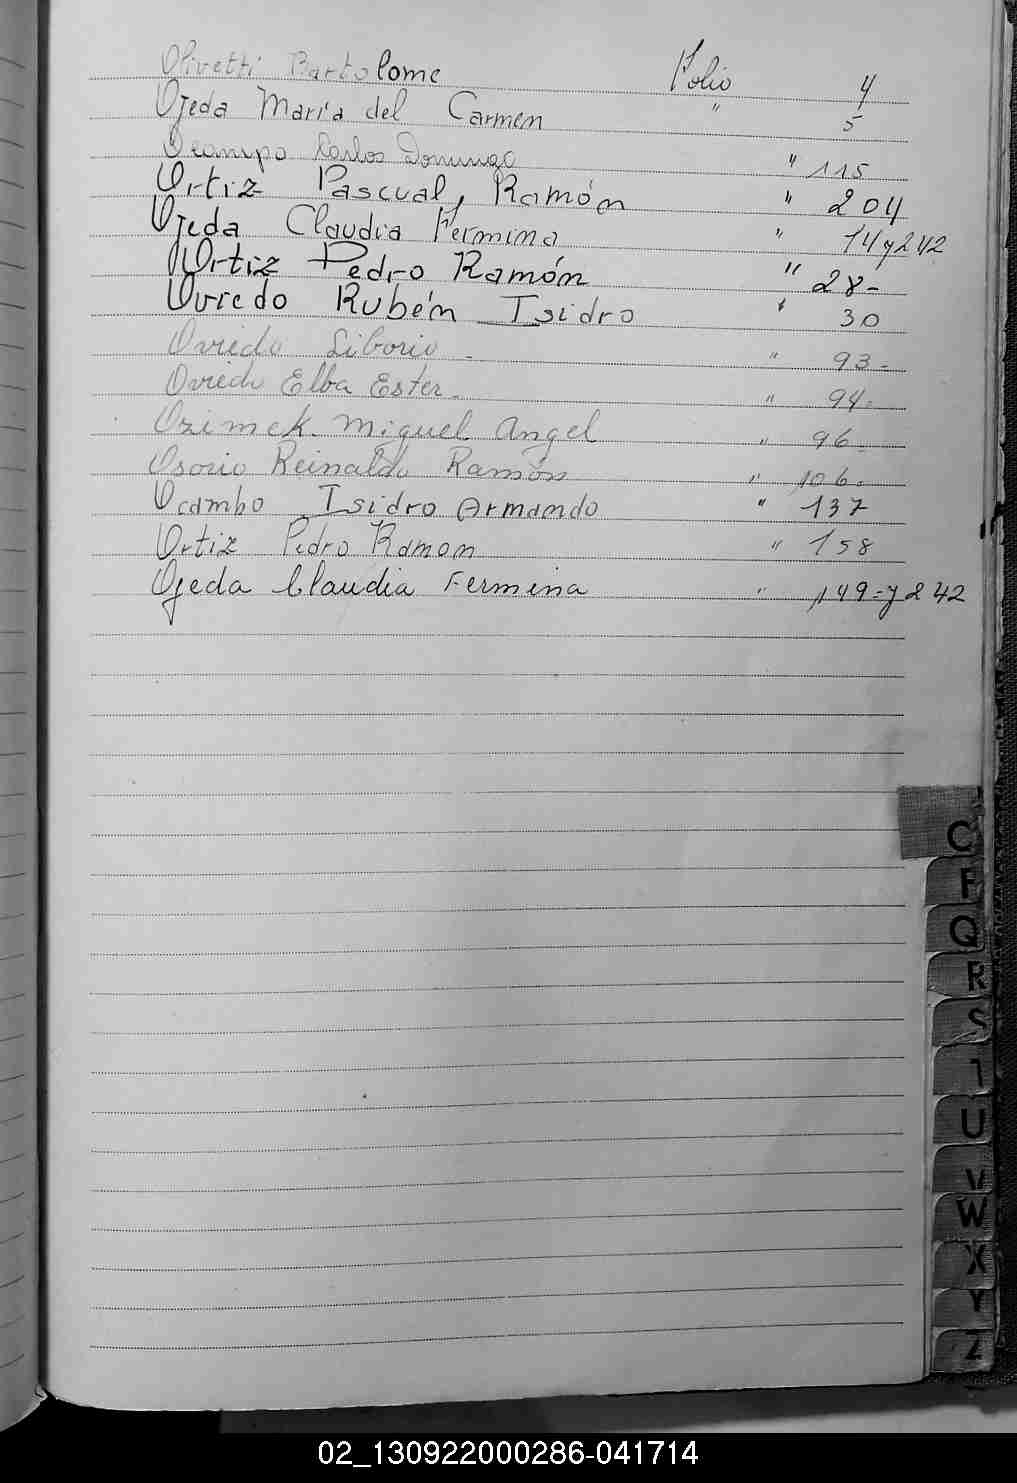 Olivetti Bartolome Folio 4
Ojeda Maria del Carmen " 5
Ocampo Carlos Domingo " 115
Ortiz Pascual, Ramón " 204
Ojeda Claudia Fermina " 14y242
Ortiz Pedro Ramón " 28-
Oviedo Rubén Isidro " 30
Oviedo Liborio - " 93-
Oviedo Elba Ester - " 94-
Ozimek Miguel Angel " 96
Osorio Reinaldo Ramón " 106.
Ocambo Isidro Armando " 137
Ortiz Pedro Ramon " 158
Ojeda Claudia Fermina " 149=y242
O
P
Q
R
S
T
U
V
W
X
Y
Z
02_130922000286-041714